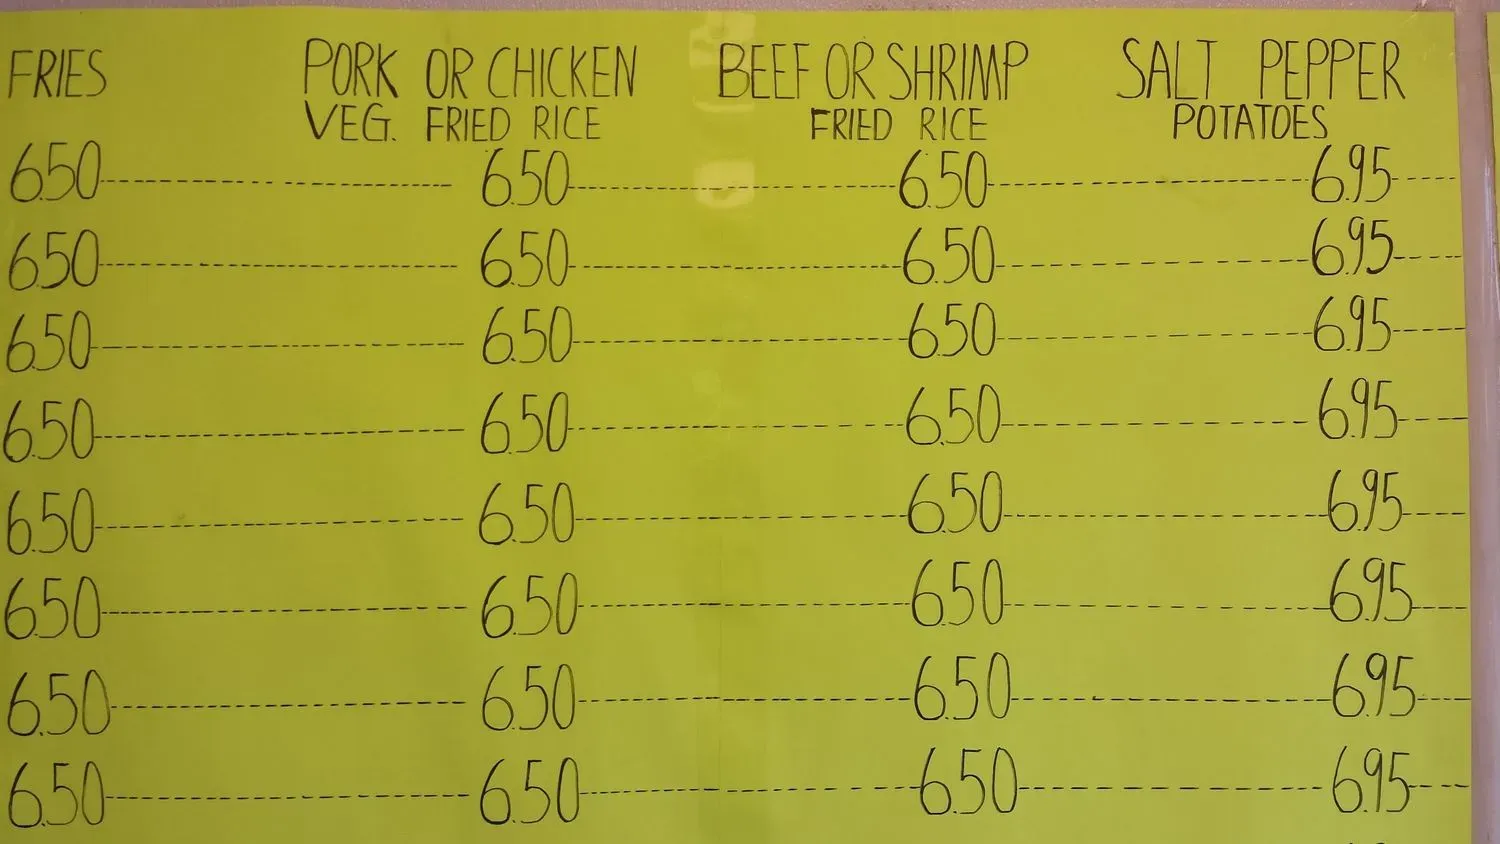 FRIES PORK OR CHICKEN BEEF OR SHRIMP SALT PEPPER
VEG. FRIED RICE FRIED RICE POTATOES
6.50 6.50 6.50 6.95
6.50 6.50 6.50 6.95
6.50 6.50 6.50 6.95
6.50 6.50 6.50 6.95
6.50 6.50 6.50 6.95
6.50 6.50 6.50 6.95
6.50 6.50 6.50 6.95
6.50 6.50 6.50 6.95